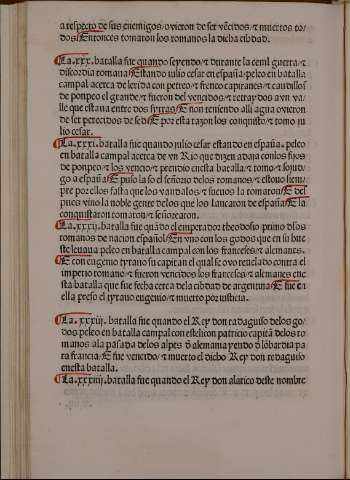 a respecto de sus enemigos/ o vieron de ser vẽcidos/ ⁊ muertos to
dos/ Entonces tomaron los romanos la dicha cibdad.
La .xxx. batalla fue quando seyendo/ ⁊ durante la ceuil guerra/ ⁊
discordia romana/ Estando iulio cesar en españa/ peleo en batalla
campal acerca de lerida con petreo/ ⁊ frenco capitanes/ ⁊ caudillos
de ponpeo el grande/ ⁊ fueron del vencidos/ ⁊ retray dos a vn va
lle que estaua entre dos syrras/ E non teniendo alli agua ovieron
de ser perecidos de sed/ E por esta razon los conquisto/ ⁊ tomo iu
lio cesar.
La .xxxi. batalla fue quando iulio cesar estando en españa. peleo
en batalla campal acerca de vn Rio que dizen adapa con los fijos
de ponpeo/ ⁊ los vencio/ ⁊ prendio en esta batalla/ ⁊ tomo/ ⁊ sojud
go a españa/ E puso la so el señorio delos romanos/ ⁊ estouo siem
pre por ellos fasta que los vandalos/ ⁊ sueuos la tomaron/ E des
pues vino la noble gente delos godos que los lancaron de españa/ E la
conquistaron tomaron/ ⁊ señorearon.
La .xxxij. batalla fue quãdo el emperador theodosio primo d̃los
romanos de nacion español/ En vno con los godos que en su hue
ste leuaua peleo en batalla campal con los franceses/ ⁊ alemanes.
E con eugenio tyrano su capitan el qual se ovo reuelado contra el
imperio romano/ ⁊ fueron vencidos los franceses/ ⁊ alemanes en e
sta batalla que fue fecha cerca dela cibdad de argentina/ E fue en
ella preso el tyrano eugenio/ ⁊ muerto por iusticia.
La .xxxiij. batalla fue quando el Rey don radaguiso delos go
dos/ peleo en batalla campal con estelicon patricio capitã delos ro
manos ala pasada delos alpes d̃ alemania yendo d̃ lõbardia pa
ra francia/ E fue vencido/ ⁊ muerto el dicho Rey don radaguiso
en esta batalla.
La .xxxiiij. batalla fue quando el Rey don alarico deste nombre